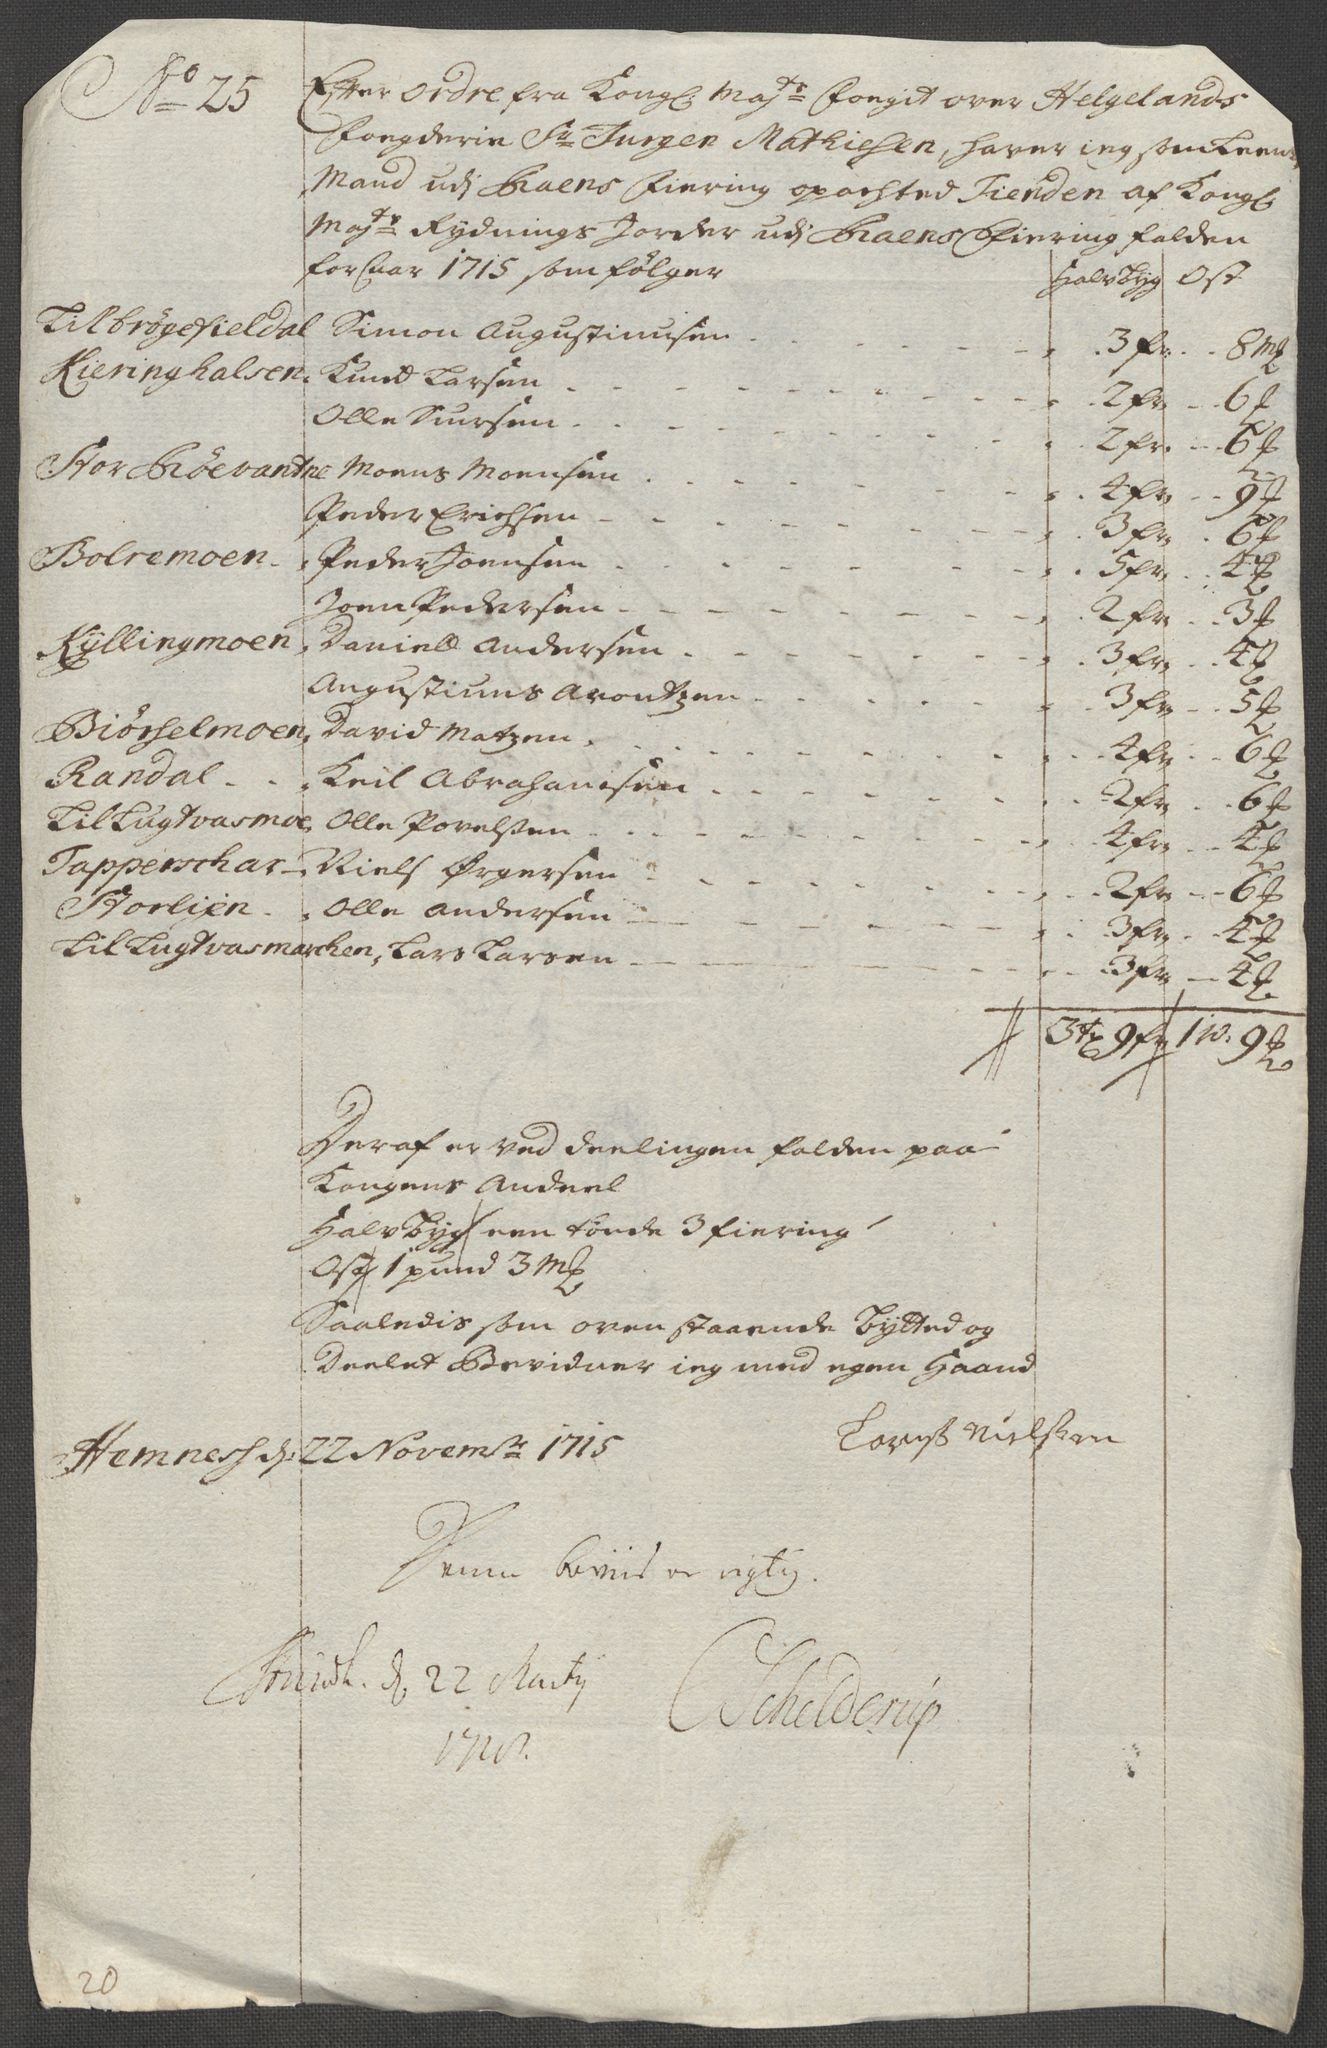 No 25
Efter Ordre fra Kongl: Maytr Fougit over Helgelands
Fougderie Sr Jurgen Mathiesen, haver ieg som Leens
Mand udj Raens Fiering opachted Tienden af Kongl:
Maytr Rydnings Jorder udj Raens Fiering falden
for Aar 1715 som følger
Halvbyg Ost
Lilbrøgefieldal Simon Augustinusen 3 fr 8 mk
Kieringhalsen Knud Larsen 2 fr 6 mk
Olle Siursen 2 fr 6 mk
Stor Røevantne Moens Moensen 4 fr 9 mk
Peder Erichsen 3 fr 6 mk
Bolremoen Peder Joensen 5 fr 4 mk
Joen Pedersen 2 fr 3 mk
Kyllingmoen Daniell Andersen 3 fr 4 mk
Augustinus Arontzen 3 fr 5 mk
Biørselmoen David Matzen 4 fr 6 mk
Randal Keil Abrahamsen 2 fr 6 mk
Lil Lugtvasmoe Olle Povelsen 4 fr 4 mk
Tapperschar Niels Ørgersen 2 fr 6 mk
Storlien Olle Andersen 3 fr 4 mk
Lil Lugtvasmarchen, Lars Larsen 3 fr 4 mk
3 tr 9 fr 1 w: 9 mk
Deraf er ved deelingen falden paa
Kongens Andeel
Halvbyg een tønde 3 fiering
Ost 1 pund 3 mk
Saaledis som oven staaende bytted og
Deelet Bevidner ieg med egen Haand
Hemnes d: 22 Novembr 1715 Lorns Nielsen
Denne beviis er rigtig.
d. 22 Marty Schelderup
20